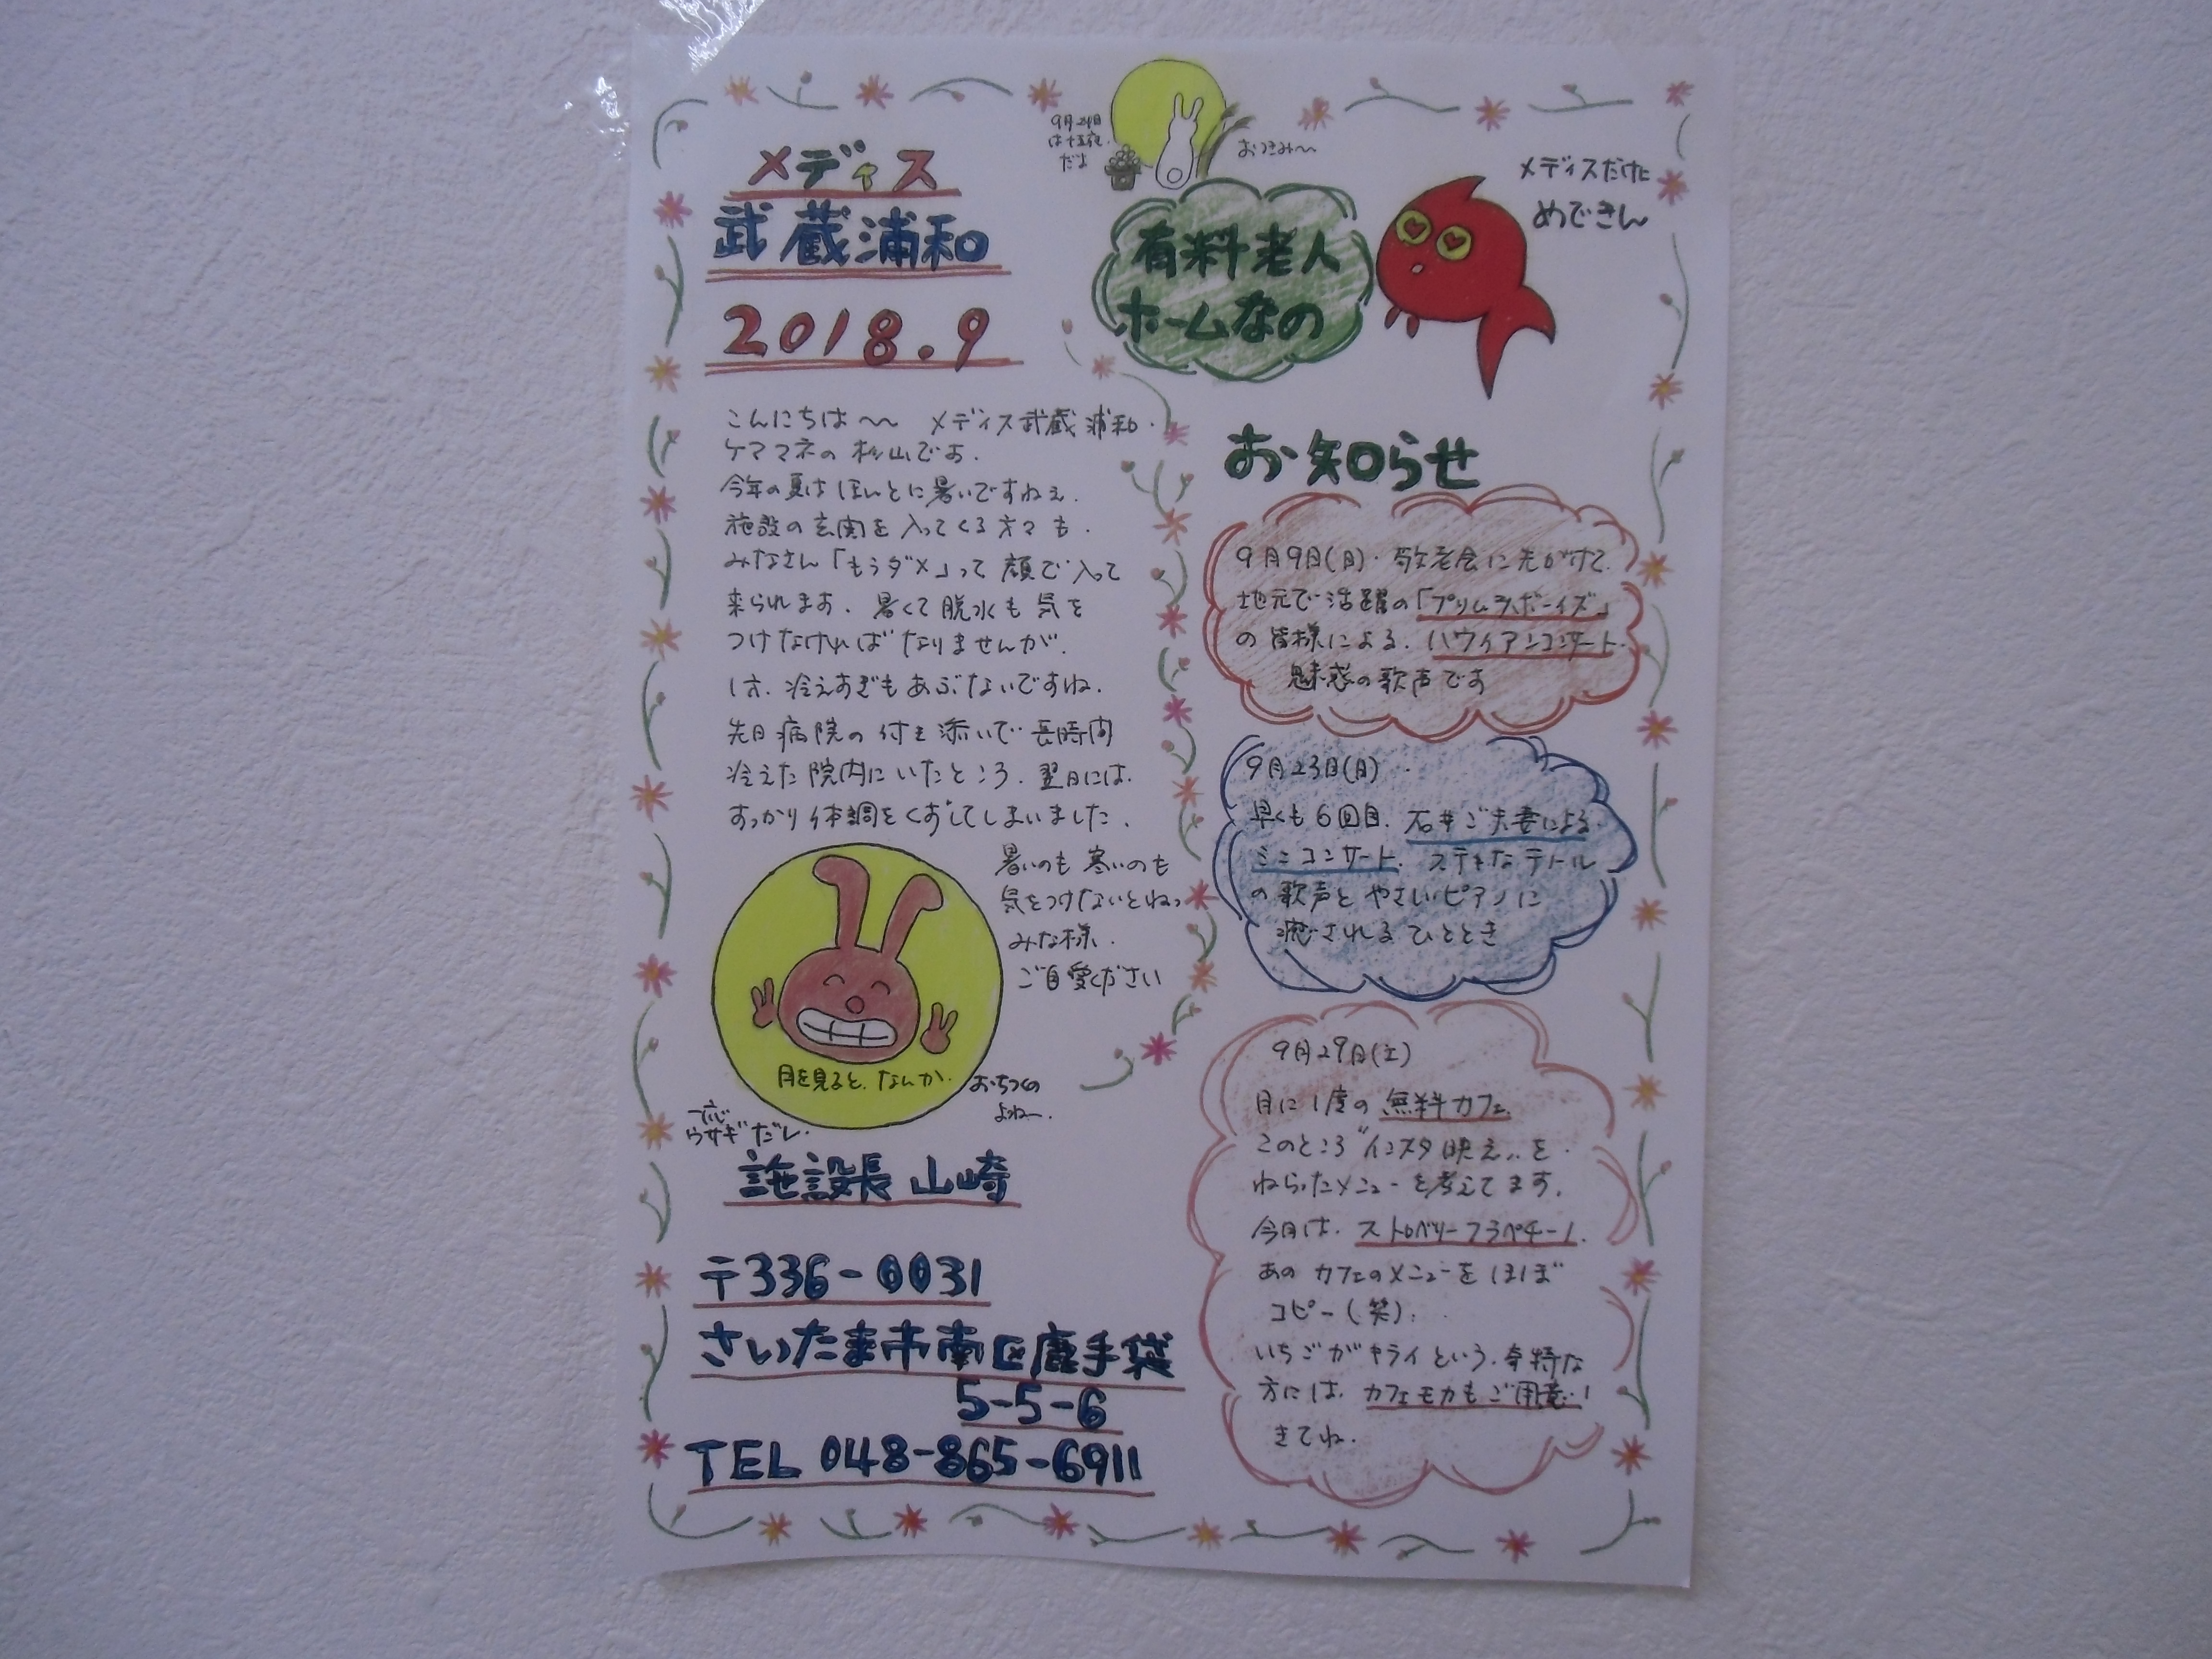 9月24日
は十五夜
だよ
おつきみ〜
メディス
武蔵浦和
2018.9
有料老人
ホームなの
メディスだけに
めできん
こんにちは〜〜 メディス武蔵浦和.
ケアマネの 杉山です.
今年の夏は ほんとに暑いですねぇ.
施設の玄関を入ってくる方々も.
みなさん「もうダメ」って 顔で入って
来られます. 暑くて脱水も気を
つけなければなりませんが.
冷えすぎもあぶないですね.
先日病院の付き添いで 長時間
冷えた院内にいたところ. 翌日には.
すっかり体調をくずしてしまいました.
暑いのも 寒いのも
気をつけないとねっ
みな様.
ご自愛ください
月を見ると、なんか.
おちつくの
よねー.
一応
ウサギだし.
施設長 山崎
〒336-0031
さいたま市南区鹿手袋
5-5-6
TEL 048-865-6911
お知らせ
9月9日(日). 敬老会に先がけて.
地元で活躍の「プリムラボーイズ」
の皆様による. ハワイアンコンサート.
魅惑の歌声です
9月23日(日)
早くも6回目. 石井ご夫妻による
ミニコンサート. ステキなテノール
の歌声と やさしいピアノに
癒されるひととき
9月29日(土)
月に1度の 無料カフェ.
このところ〝インスタ映え〟を.
ねらったメニューを考えてます.
今月は. ストロベリーフラペチーノ.
あの カフェのメニューを ほぼ
コピー(笑).
いちごがキライという. 奇特な
方には. カフェモカもご用意!
きてね.